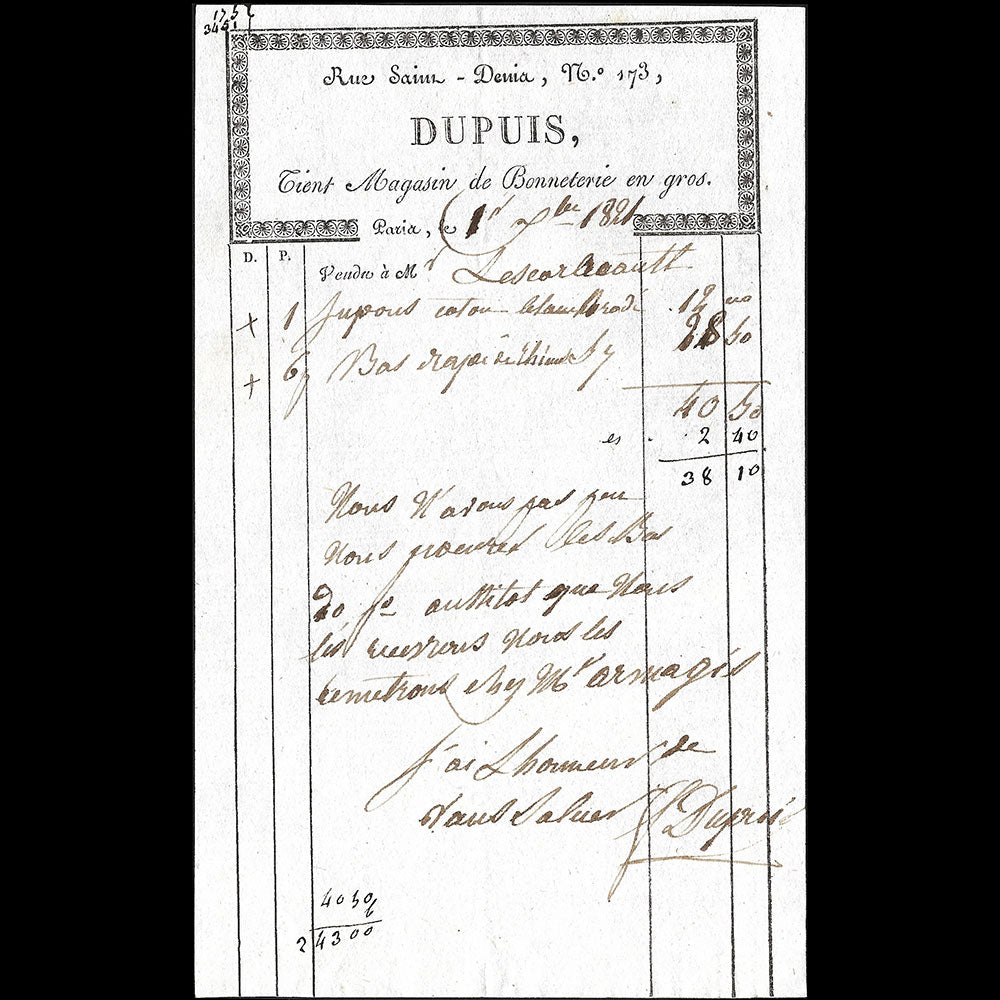 175
3451
Rue Saint-Denis, N.o 173,
DUPUIS,
Tient Magasin de Bonneterie en gros.
Paris, le 1r 7bre 1821
D. P. Vendu à Mr
+ 1 Jupons coton Brodé 12 00
+ 6 Bas 28 50
40 50
es . 2 40
38 10
Nous N'avons pas peu
Nous procurer les Bas
aussitot que Nous
les recevrons Nous les
remetrons chez Mr armagis
j'ai L'honneur de
Vous Saluer Dupuis
4050
6
2 4300